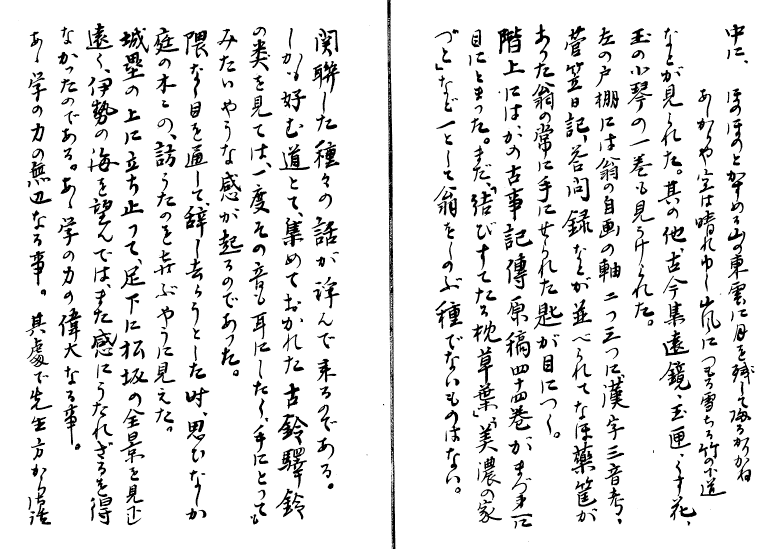 中に、ほのぼのとかすめる山の東雲に月を残して帰るかりがね
あらしや空は晴れゆく山風につもる雪ちる竹の小道
などが見られた。其の他、古今集遠鏡、玉匣、うす花、
玉の小琴の一巻も見うけられた。
左の戸棚には翁の自画の軸二つ三つに、漢字三音考、
菅笠日記、答問録などが並べられてなほ薬筐が
あつた翁の常に手にせられた匙が目につく。
階上にはかの古事記傳原稿四十四巻がまづ第一に
目にとまつた。まだ「結びすてたる枕草葉」、「美濃の家
づと」など一として翁をしのぶ種でないものはない。
関聯した種々の話が詳んで来るのである。
しかも好む道とて、集めておかれた古鈴驛鈴
の類を見ては、一度その音も耳にしたく、手にとつても
みたいやうな感が起るのであつた。
隈なく目を通して、辞し去らうとした時、思ひなしか
庭の木の、訪うたのを喜ぶやうに見えた。
城塁の上に立ち止つて、足下に松坂の全景を見下し
遠く、伊勢の海を望んでは、また感にうたれざるを得
なかつたのである。あゝ学の力の偉大なる事。
あゝ学の力の無辺なる事。其處で先生方から御話